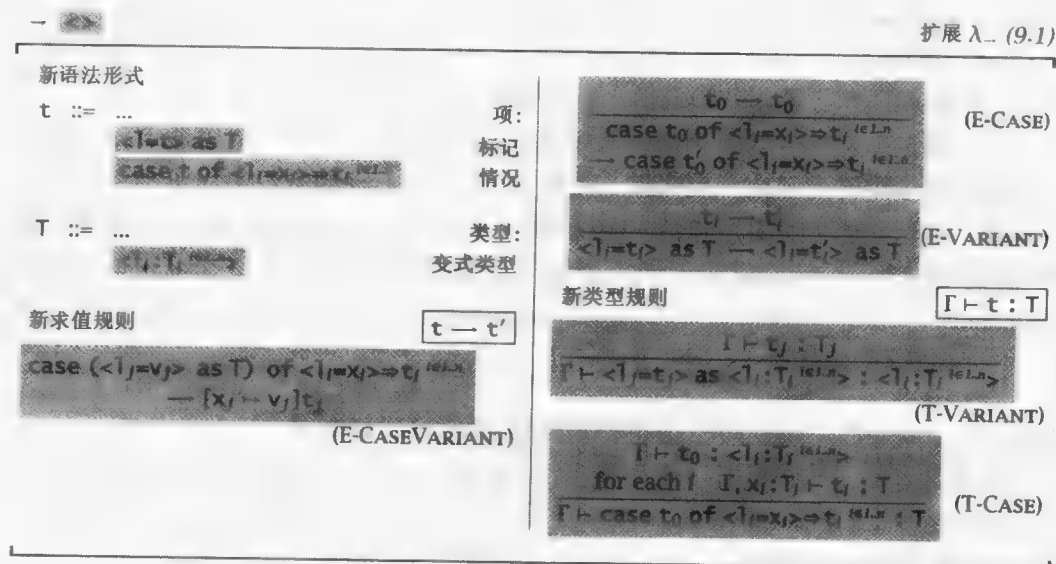 → <>
扩展 λ→ (9-1)
新语法形式
t ::= ... 项:
<l=t> as T 标记
case t of <lᵢ=xᵢ>⇒tᵢ ⁱ∈¹··ⁿ 情况
T ::= ... 类型:
<lᵢ:Tᵢ ⁱ∈¹··ⁿ> 变式类型
新求值规则 t → t′
case (<lⱼ=vⱼ> as T) of <lᵢ=xᵢ>⇒tᵢ ⁱ∈¹··ⁿ
→ [xⱼ ↦ vⱼ]tⱼ
(E-CASEVARIANT)
t₀ → t₀′
case t₀ of <lᵢ=xᵢ>⇒tᵢ ⁱ∈¹··ⁿ
→ case t₀′ of <lᵢ=xᵢ>⇒tᵢ ⁱ∈¹··ⁿ
(E-CASE)
tᵢ → tᵢ′
<lᵢ=tᵢ> as T → <lᵢ=tᵢ′> as T
(E-VARIANT)
新类型规则 Γ ⊢ t : T
Γ ⊢ tⱼ : Tⱼ
Γ ⊢ <lⱼ=tⱼ> as <lᵢ:Tᵢ ⁱ∈¹··ⁿ> : <lᵢ:Tᵢ ⁱ∈¹··ⁿ>
(T-VARIANT)
Γ ⊢ t₀ : <lᵢ:Tᵢ ⁱ∈¹··ⁿ>
for each i Γ, xᵢ:Tᵢ ⊢ tᵢ : T
Γ ⊢ case t₀ of <lᵢ=xᵢ>⇒tᵢ ⁱ∈¹··ⁿ : T
(T-CASE)